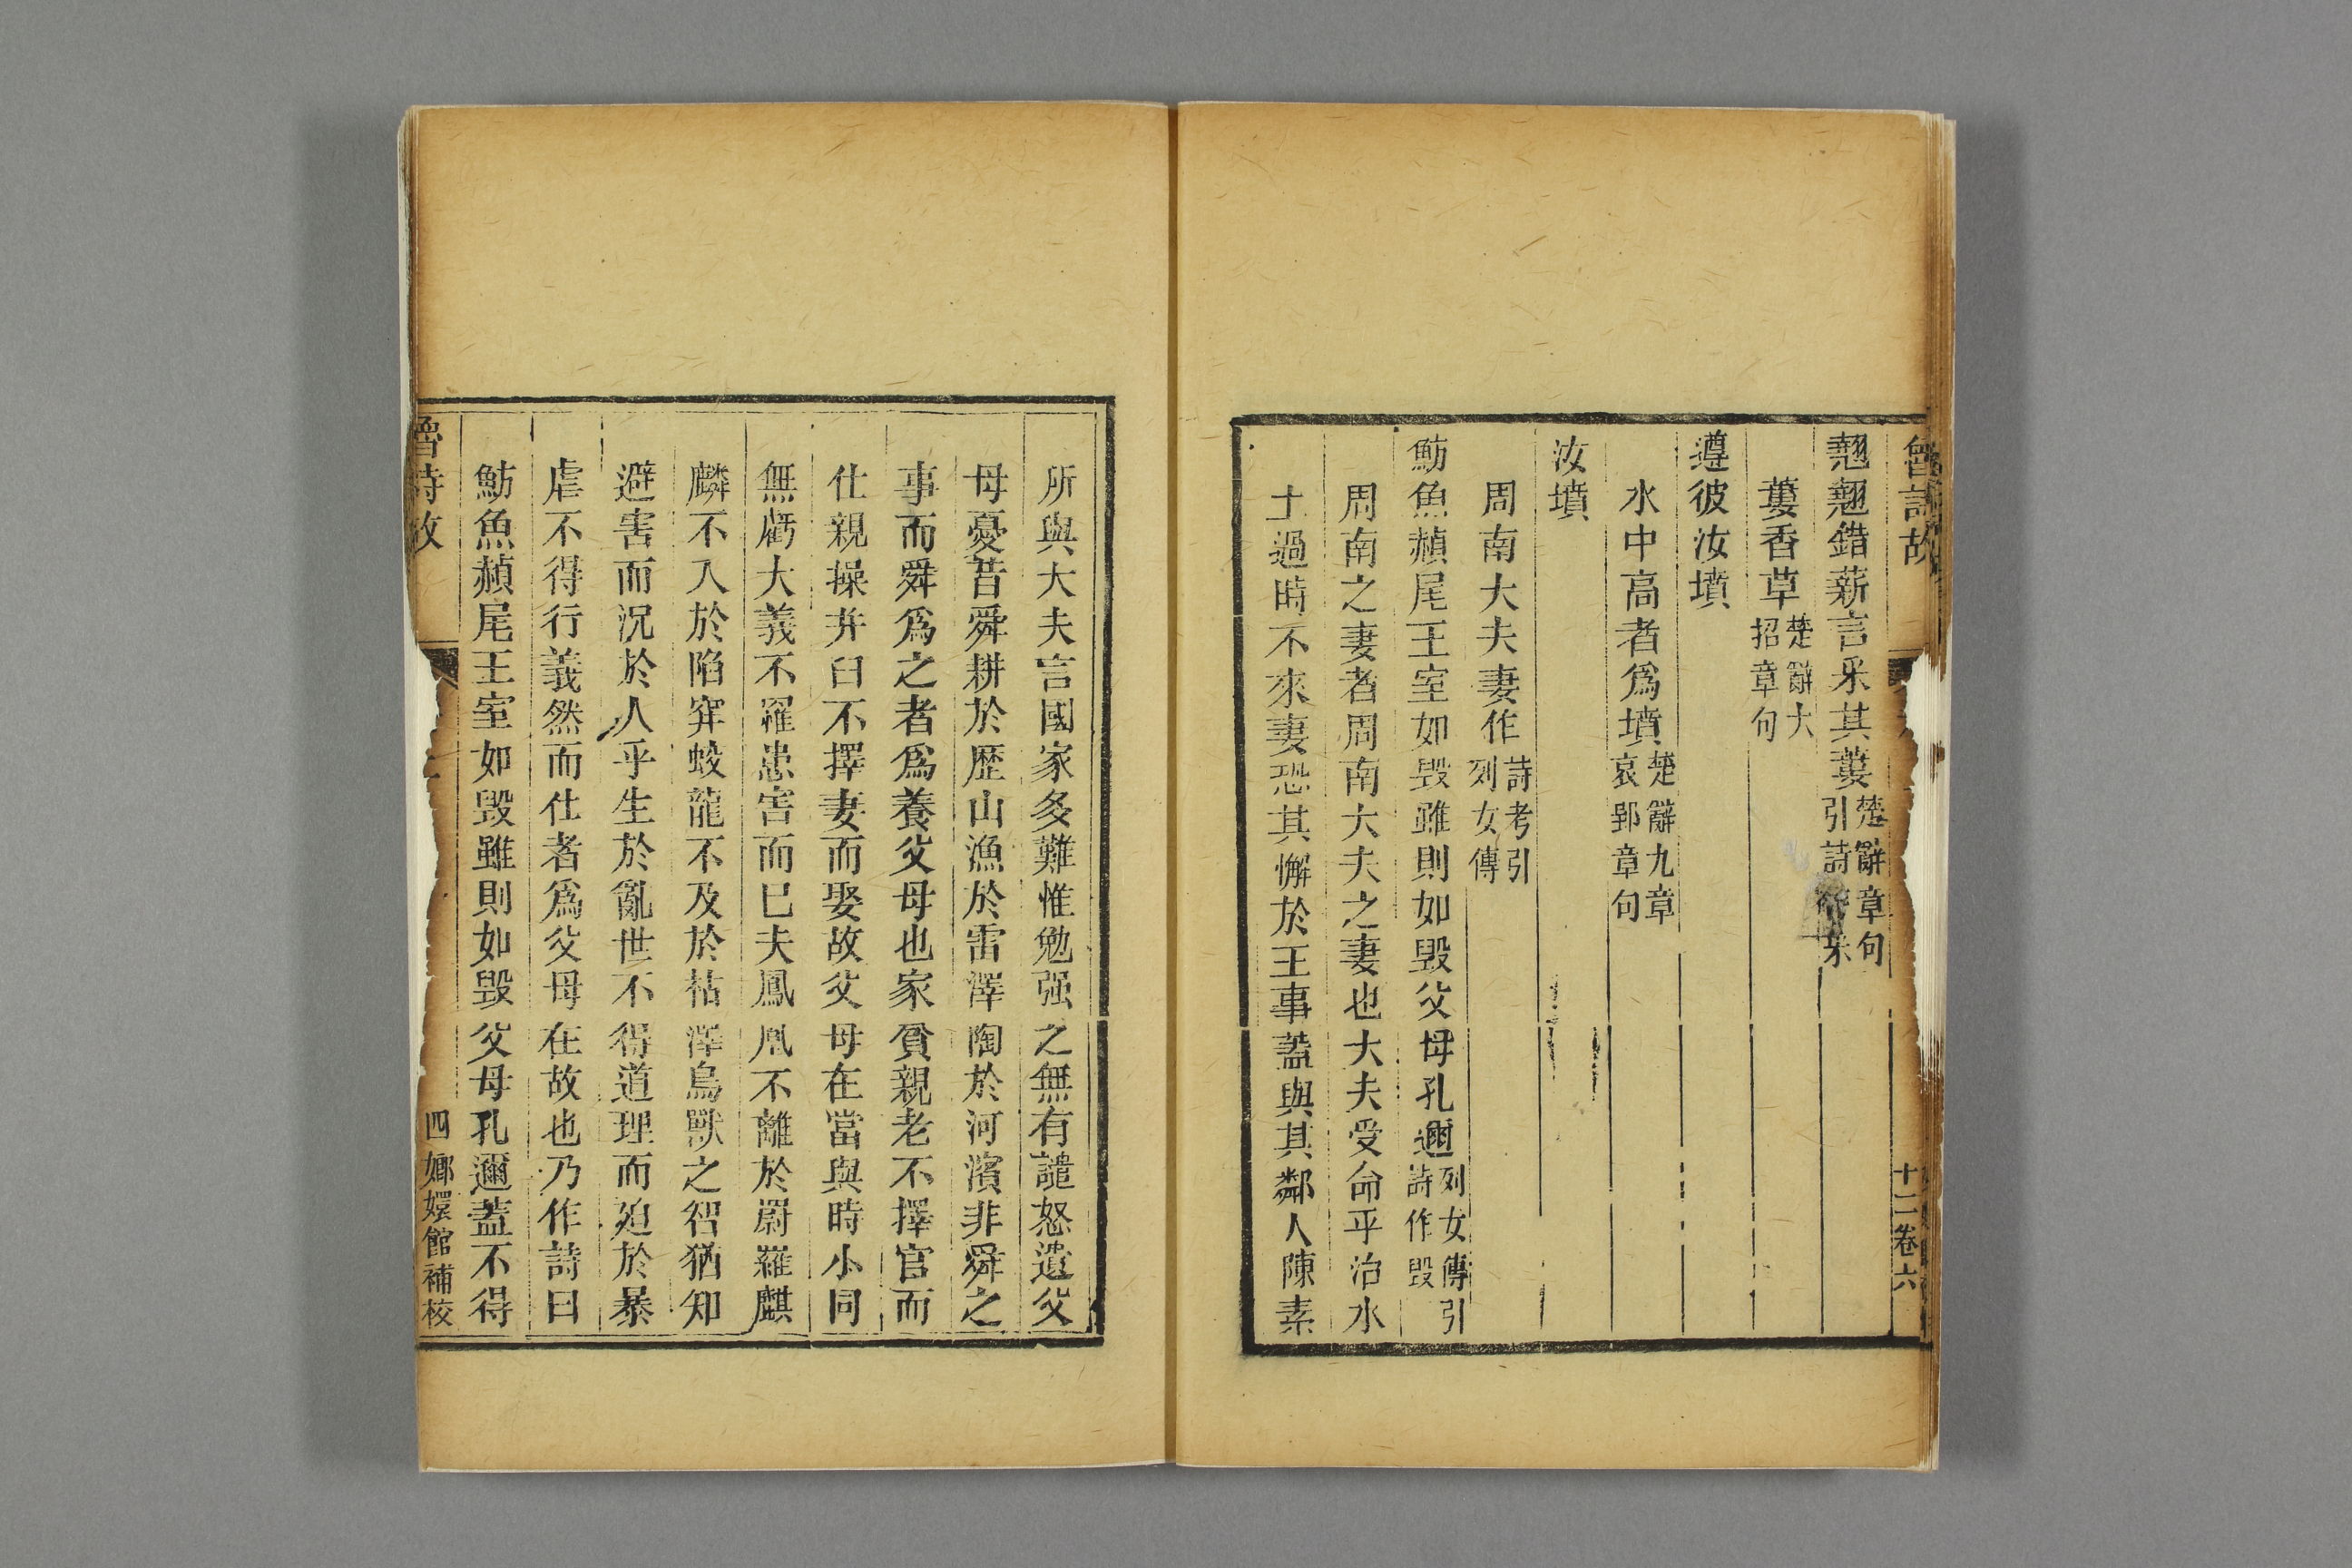 魯詩故
十二卷六
翹翹錯薪言采其蔞楚辭章句引詩采
蔞香草楚辭大招章句
遵彼汝墳
水中高者爲墳楚辭九章哀郢章句
汝墳
周南大夫妻作詩考引列女傳
魴魚赬尾王室如毁雖則如毁父母孔邇列女傳引詩作毁
周南之妻者周南大夫之妻也大夫受命平治水
土過時不來妻恐其懈於王事蓋與其鄰人陳素
所與大夫言國家多難惟勉强之無有譴怒遺父
母憂昔舜耕於歷山漁於雷澤陶於河濱非舜之
事而舜爲之者爲養父母也家貧親老不擇官而
仕親操井臼不擇妻而娶故父母在當與時小同
無虧大義不罹患害而已夫鳳凰不離於罻羅麒
麟不入於陷穽蛟龍不及於枯澤鳥獸之智猶知
避害而況於人乎生於亂世不得道理而廹於暴
虐不得行義然而仕者爲父母在故也乃作詩曰
魴魚赬尾王室如毁雖則如毁父母孔邇蓋不得
魯詩故
四 嫏嬛館補校